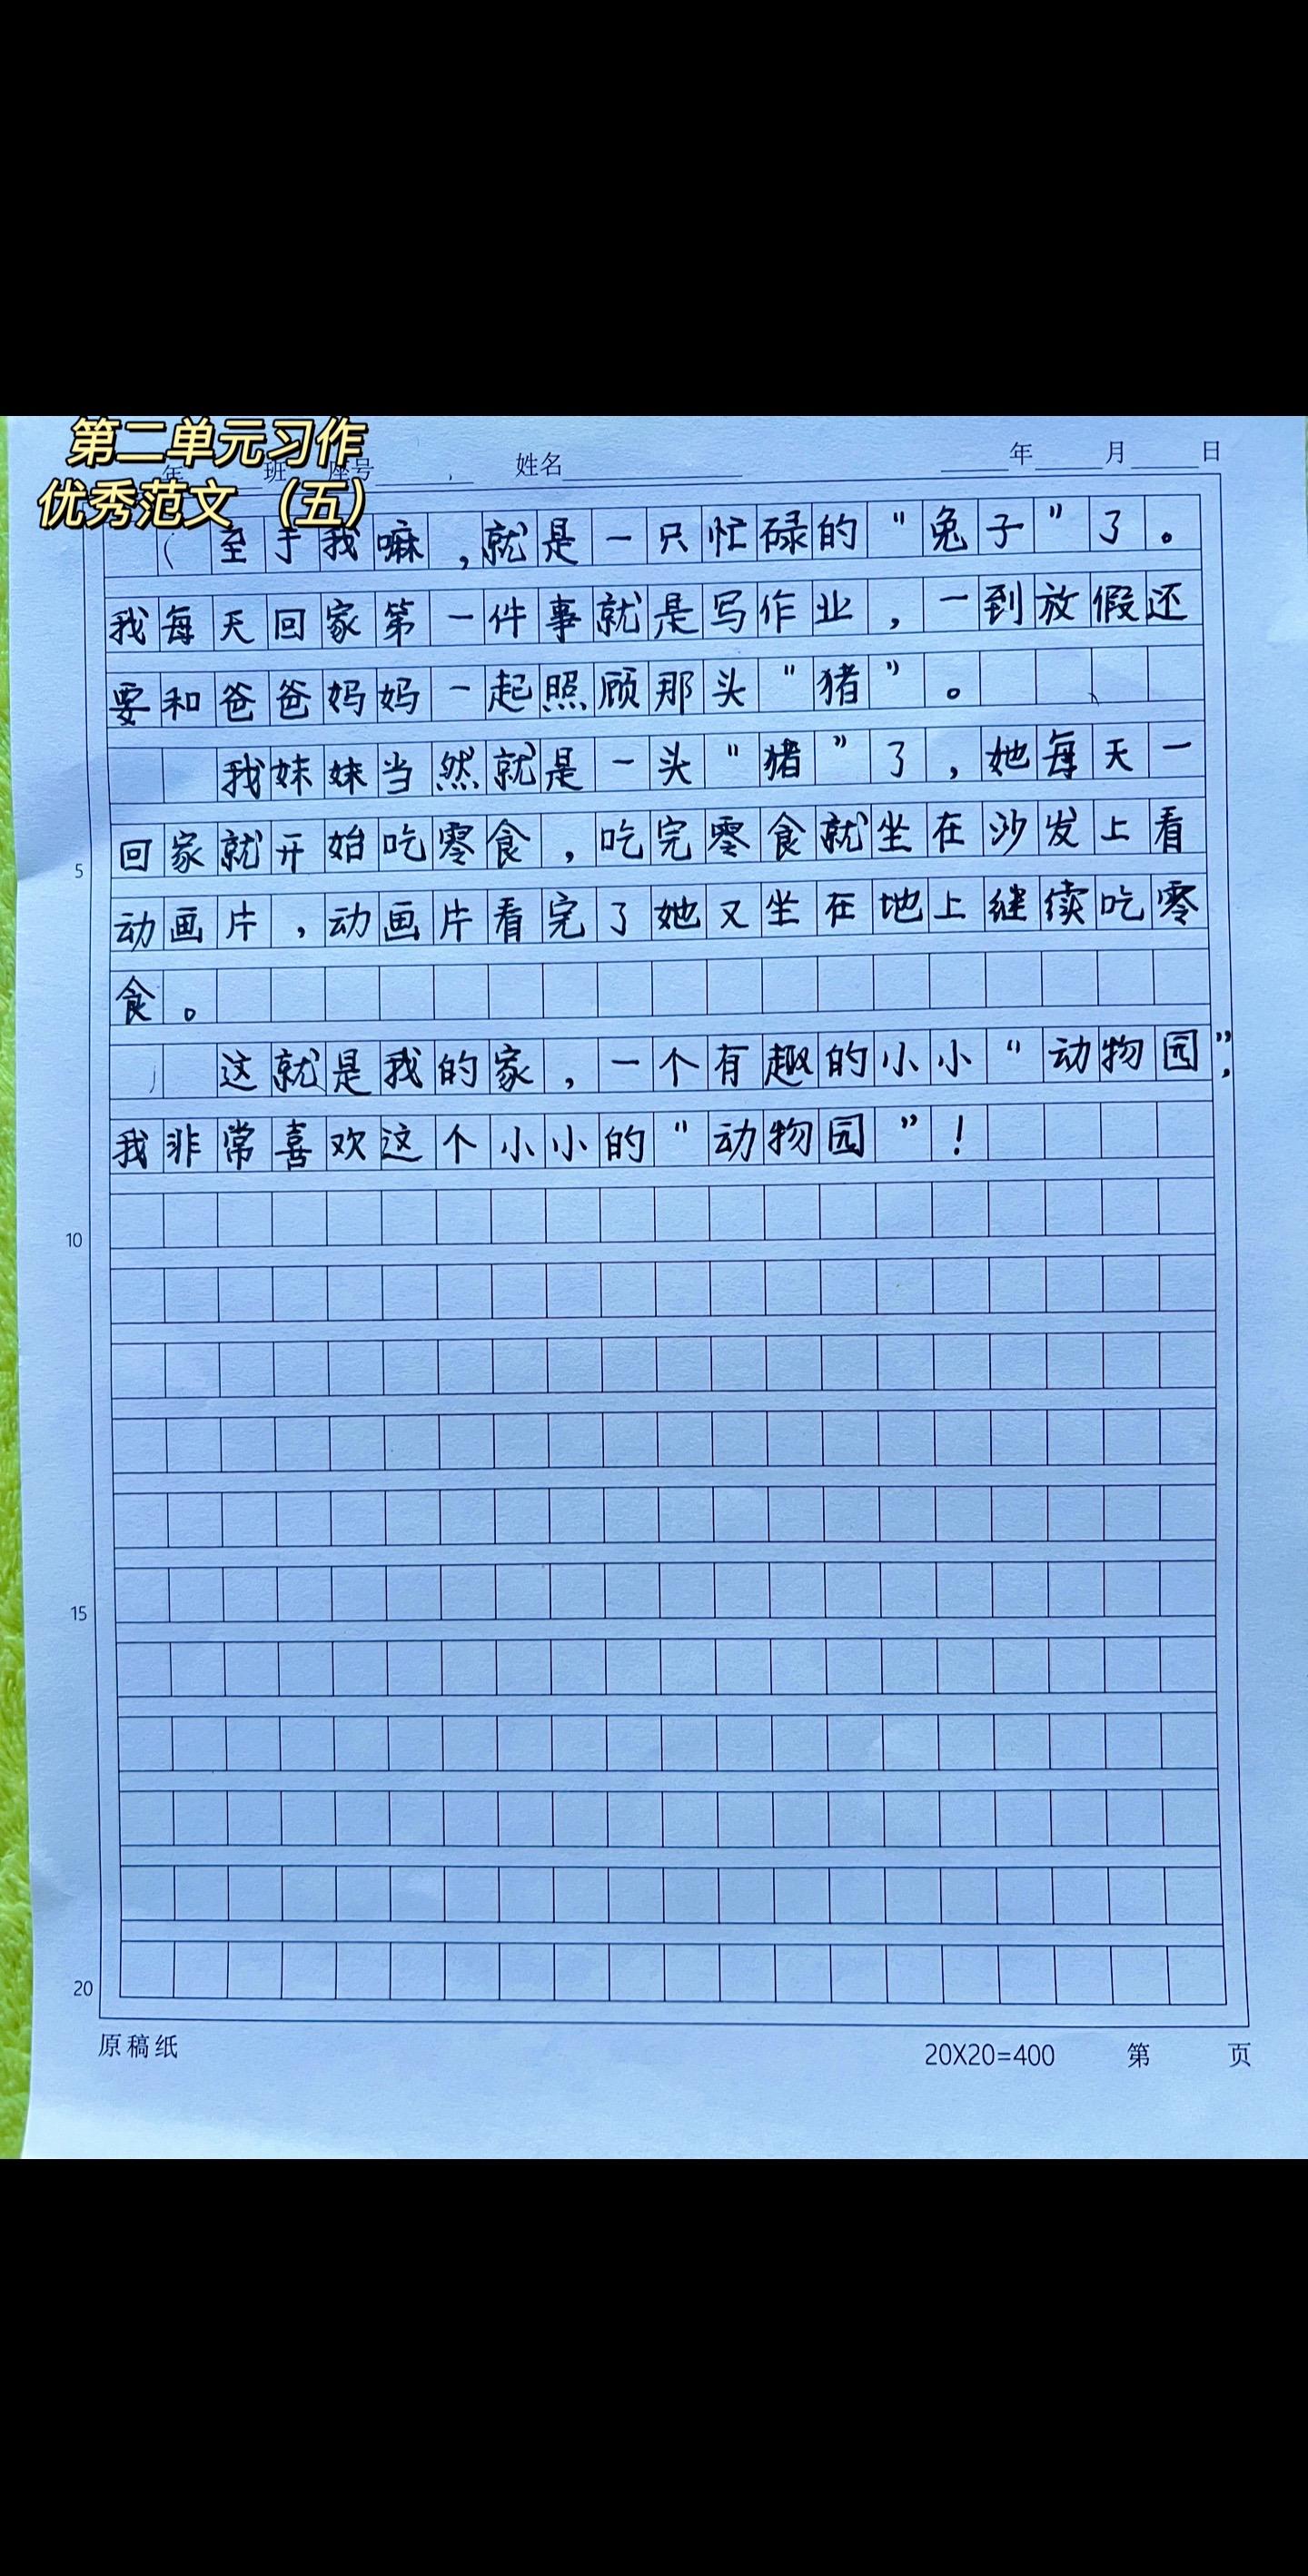 第二单元习作
优秀范文（五）
年 班 座号 姓名 年 月 日
至于我嘛，就是一只忙碌的“兔子”了。
我每天回家第一件事就是写作业，一到放假还
要和爸爸妈妈一起照顾那头“猪”。
我妹妹当然就是一头“猪”了，她每天一
回家就开始吃零食，吃完零食就坐在沙发上看
5
动画片，动画片看完了她又坐在地上继续吃零
食。
这就是我的家，一个有趣的小小“动物园”，
我非常喜欢这个小小的“动物园”！
10
15
20
原稿纸 20X20=400 第 页